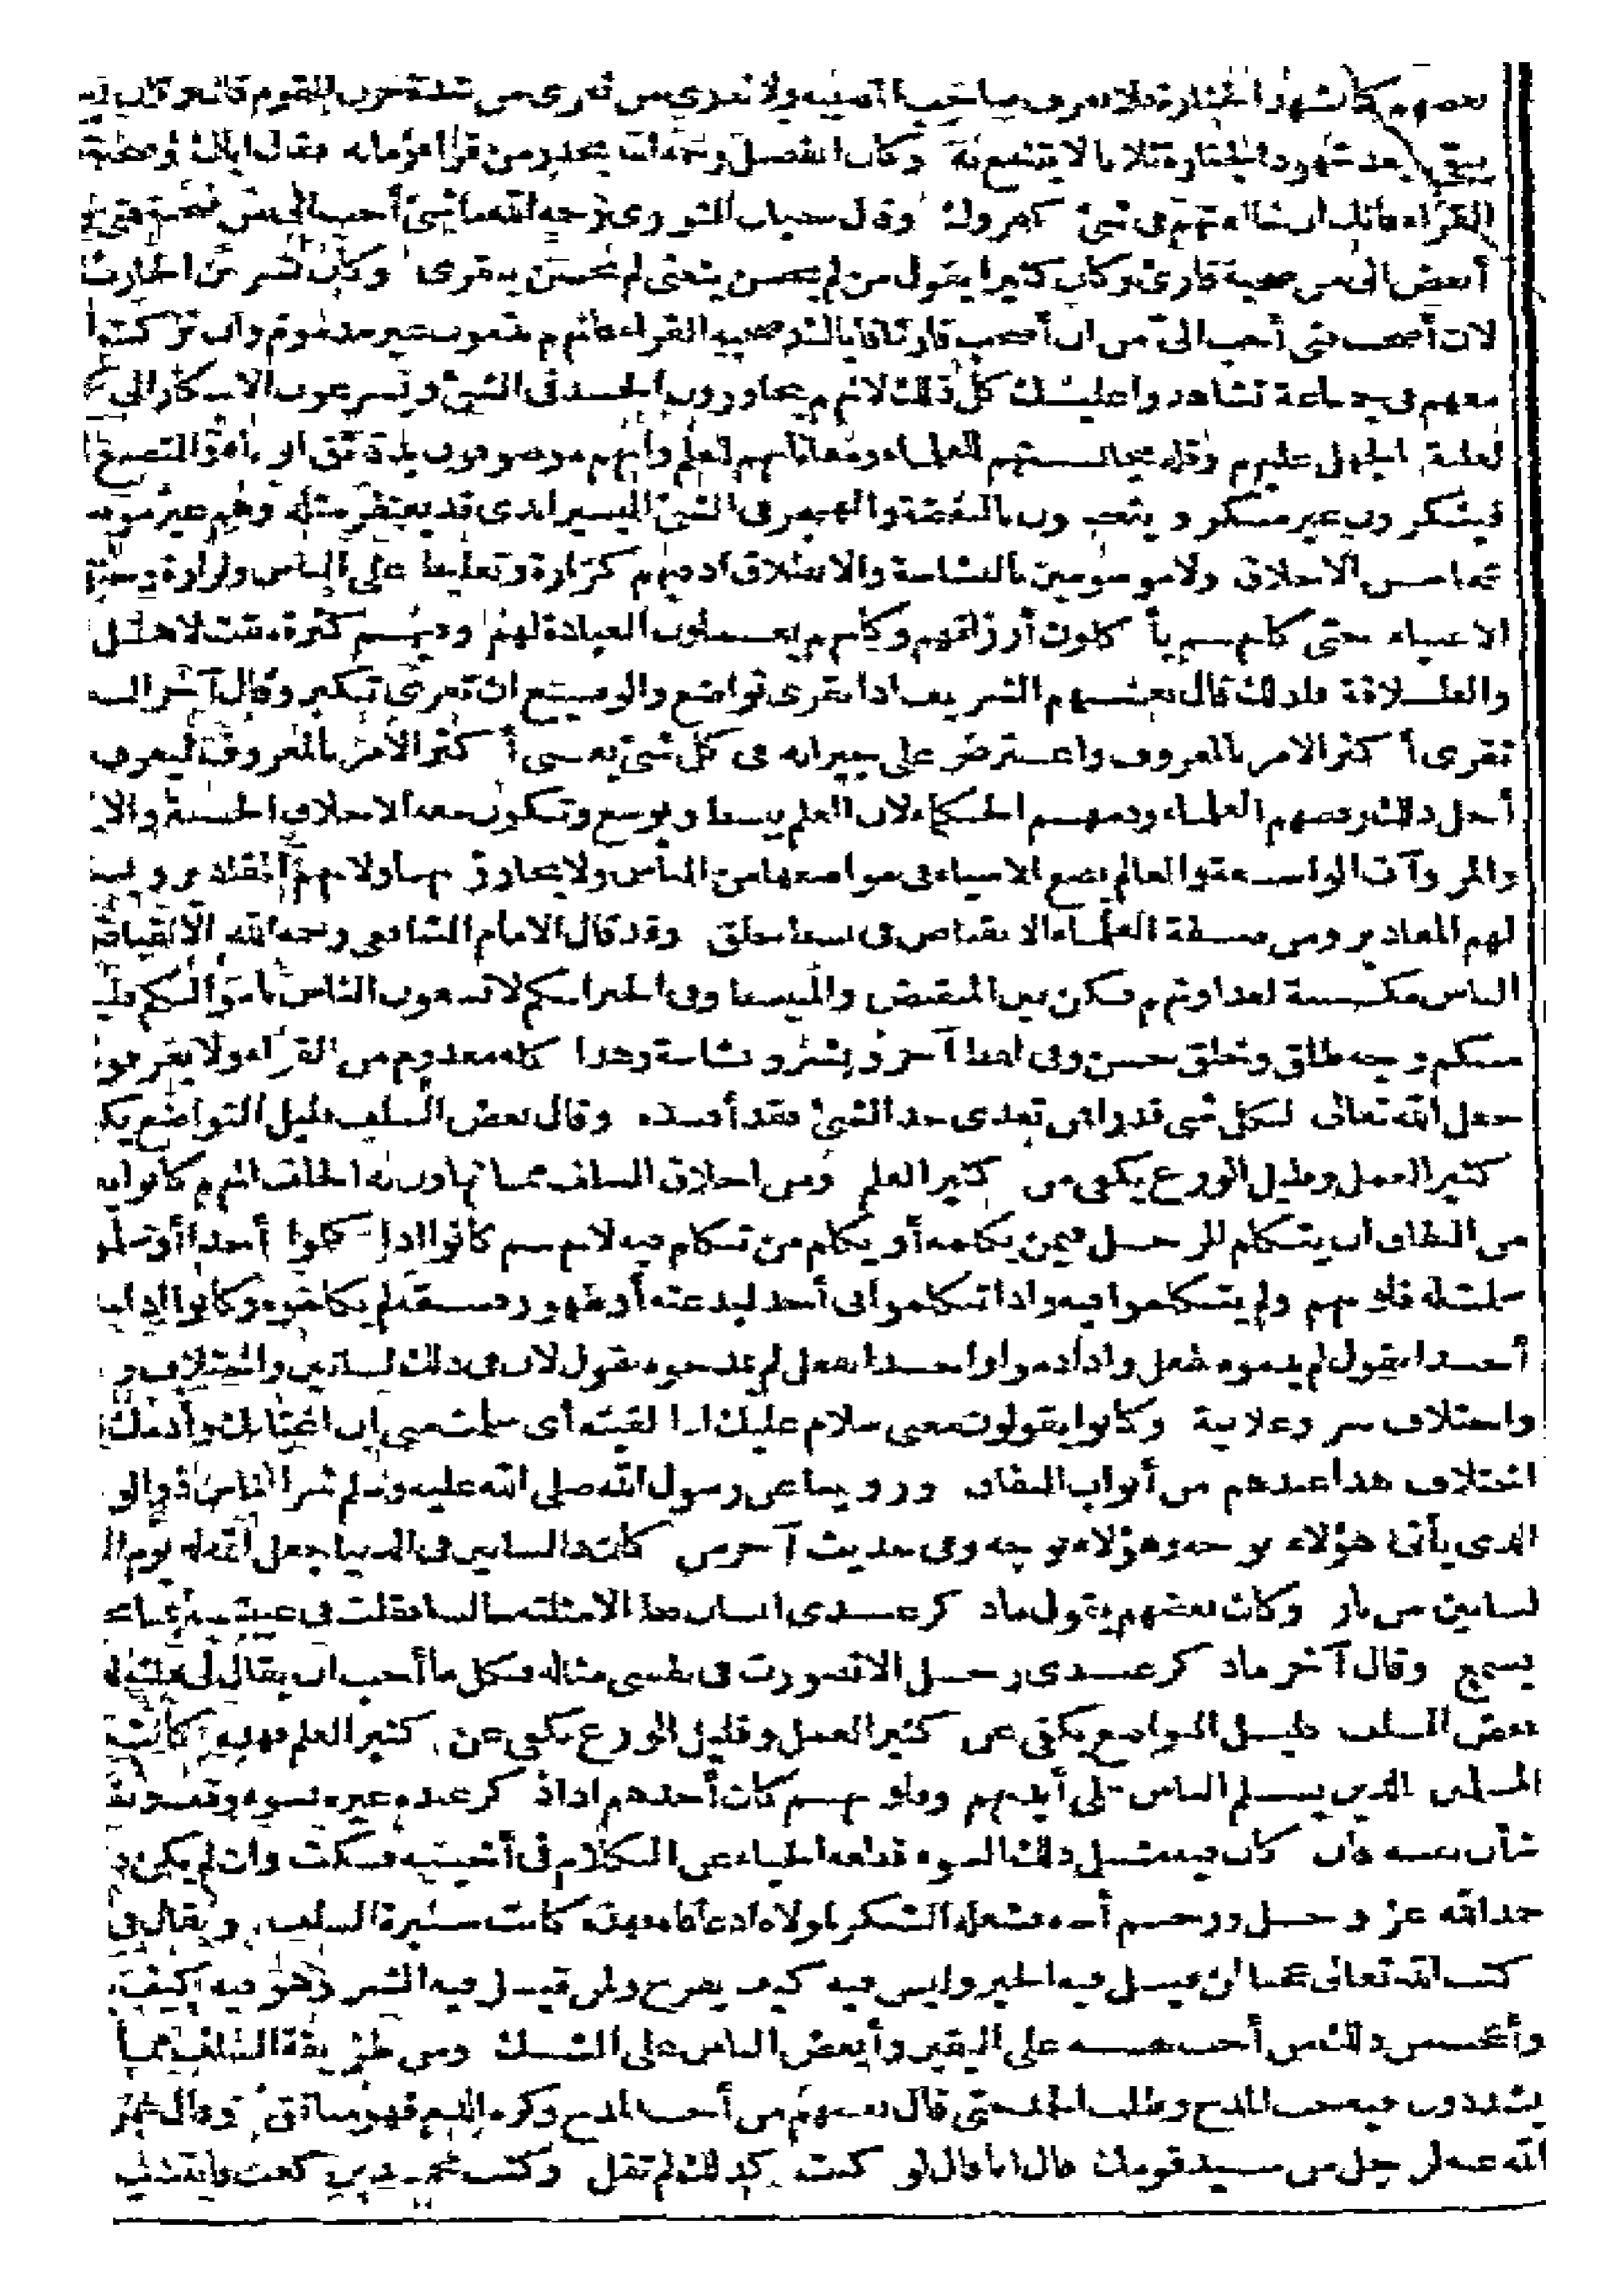 بعضهم كنا نشهد الجنازة فلا نعرف صاحب المصيبة ولا ندري من نعزى من شدة حزن القوم قال وكان
يبقى بعد شهود الجنازة ثلاثا لا ينتفع به وكان الفضيل رحمه الله يحذر من قراء زمانه فقال اياك وصحبة
القراء فانك ان خالفتهم في شئ كفروك وقال سفيان الثورى رحمه الله ما شئ أحب الى من صحبة فتى
أبغض الى من صحبة قارئ وكان كثيرا يقول من لم يحسن يتفتى لم يحسن يتقرى وكان بشر بن الحارث
لان أصحب فتى أحب الى من ان أصحب قارئا
معهم في جماعة تشاهدوا عليك كل ذلك لانهم يجاوزون الحد فى الشئ ويسرعون الانكار الى
لغلبة الجهل عليهم وقلة مجالستهم للعلماء
فينكرون غير منكر و بالبغضة والهجر فى الشئ اليسير الذى قد يغتفر مثله وهم غير
بمحاسن الاخلاق ولا موسومين بالبشاشة والاطلاق اذ فيهم كزازة وتغليظ على الناس
الاغنياء حتى كأنهم يأ كلون أرزاقهم وكأنهم يعملون العبادة لهم وفيهم كثرة مقت لاهل
والطلاقة فلذلك قال بعضهم الشريف اذا تقرى تواضع والوضيع ان تقرى تكبر وقال آخر
تقرى أ كثر الامر بالمعروف واعترض على جيرانه فى كل شئ يعنى أ كثر الأمر بالمعروف ليعرف
أجل ذلك رفضهم العلماء وذمهم الحكماء لان العلم يبسط ويوسع وتكون معه الاخلاق الحسنة والا
والمروآت الواسعة والعالم يضع الاشياء فى مواضعها من الناس ولا يجاوز
لهم المعاذير ومن صفة العلماء الانقباض فى بسط خلق وقد قال الامام الشافعى رحمه الله الانقباض
الناس مكسبة لعداوتهم فكن بين المنقبض والمنبسط وفى الخبر انكم لا تسعون الناس بأموالكم
منكم وجه طلق وخلق حسن وفى لفظ آخر وبشر وبشاشة وهذا كله معدوم من القراء ولا يعرفون
جعل الله تعالى لكل شئ قدرا فمن تعدى حد الشئ فقد أفسده وقال بعض السلف قليل التواضع
كثير العمل وقليل الورع يكفى من كثير العلم ومن اخلاق السلف مما تهاون به الخلف انهم كانوا
من النفاق ان يتكلم الرجل فيمن يكلمه أو يكلم من تكلم فيه لانهم كانوا اذا كلموا أحدا أو
سلمت له قلوبهم ولم يتكلموا فيه واذا تكلموا فى أحد لبدعته أو ظهور فسقه لم يكلموه وكانوا اذا
أحدا بقول لم يذموه بفعل واذا ذموا واحدا بفعل لم يمدحوه بقول لان فى ذلك لسانين واختلاف و
واختلاف سر وعلانية وكانوا يقولون معنى سلام عليك اذا لقيته أى سلمت منى ان اغتابك وأذمك
اختلاف هذا عندهم من أبواب النفاق وروينا عن رسول الله صلى الله عليه وسلم شر الناس ذو الو
الذى يأتى هؤلاء بوجه وهؤلاء بوجه وفى حديث آخر من كان ذا لسانين فى الدنيا جعل الله له يوم ال
لسانين من نار وكان بعضهم يقول ما ذ كر عندى انسان قط الا مثلته جالسا فقلت فى غيبته
يسمع وقال آخر ما ذ كر عندى رجل الا تصورت فى نفسى مثاله فكل ما أحب ان يقال لى قلته له
بعض السلف قليل التواضع يكفى عن كثير العمل وقليل الورع يكفى عن كثير العلم فهذه كانت
المسلمين الذين يسلم الناس من أيديهم كان أحدهم اذا ذ كر عنده غيره بسوء
شأن نفسه فان كان فيه مثل ذلك السوء قطعه الحياء عن الكلام فى أخيه فسكت وان لم يكن
حمد الله عز وجل ورحم أخاه فشغله الشكر لمولاه اذ عافاه فهذه كانت سيرة السلف ويقال فى
كتب الله تعالى عجبا لمن قيل فيه الخير وليس فيه كيف يفرح ولمن قيل فيه الشر وهو فيه كيف
وأعجب من ذلك من أحب نفسه على اليقين وأبغض الناس على الشك ومن طريقة السلف مما
يشددون فيه حب المدح وطلب الحمد حتى قال بعضهم من أحب المدح وكره الذم فهو منافق وقال عمر
الله عنه لرجل من سيد قومك قال انا قال لو كنت كذلك لم تقل وكتب محمد بن كعب